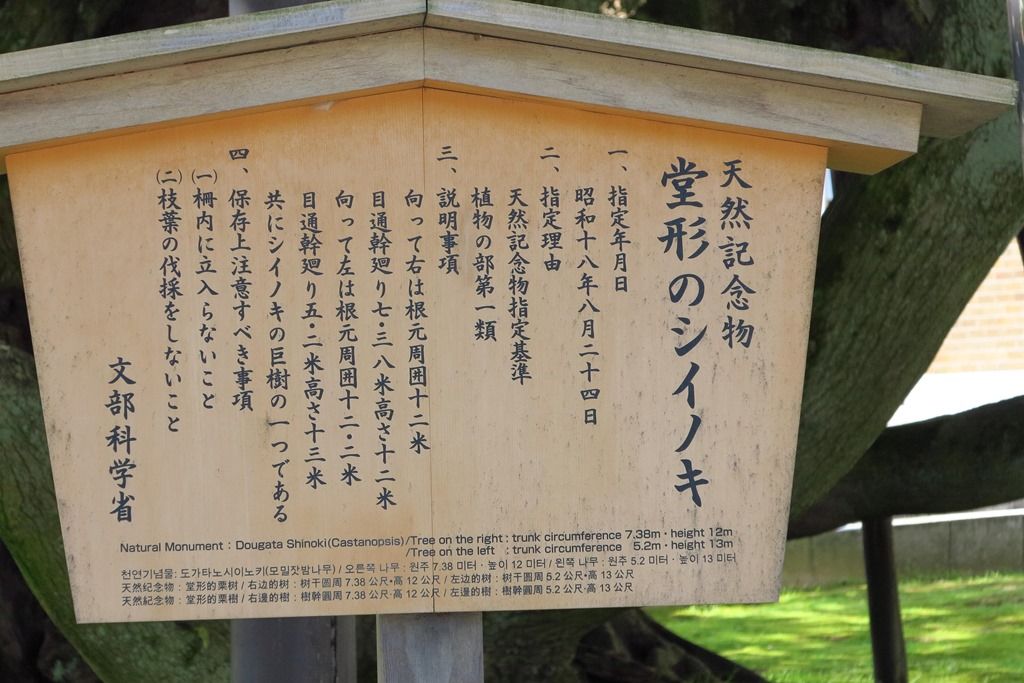 天然記念物
堂形のシイノキ
一、指定年月日
昭和十八年八月二十四日
二、指定理由
天然記念物指定基準
植物の部第一類
三、説明事項
向って右は根元周囲十二米
目通幹廻り七・三八米高さ十二米
向って左は根元周囲十二・二米
目通幹廻り五・二米高さ十三米
共にシイノキの巨樹の一つである
四、保存上注意すべき事項
(一)柵内に立入らないこと
(二)枝葉の伐採をしないこと
文部科学省
Natural Monument : Dougata Shinoki(Castanopsis)/Tree on the right : trunk circumference 7.38m・height 12m
/Tree on the left : trunk circumference 5.2m・height 13m
천연기념물: 도가타노시이노키(모밀잣밤나무) / 오른쪽 나무 : 원주 7.38 미터・높이 12 미터 / 왼쪽 나무 : 원주 5.2 미터・높이 13 미터
天然纪念物 : 堂形的栗树 / 右边的树 : 树干圆周 7.38 公尺・高 12 公尺 / 左边的树 : 树干圆周 5.2 公尺・高 13 公尺
天然紀念物 : 堂形的栗樹 / 右邊的樹 : 樹幹圓周 7.38 公尺・高 12 公尺 / 左邊的樹 : 樹幹圓周 5.2 公尺・高 13 公尺